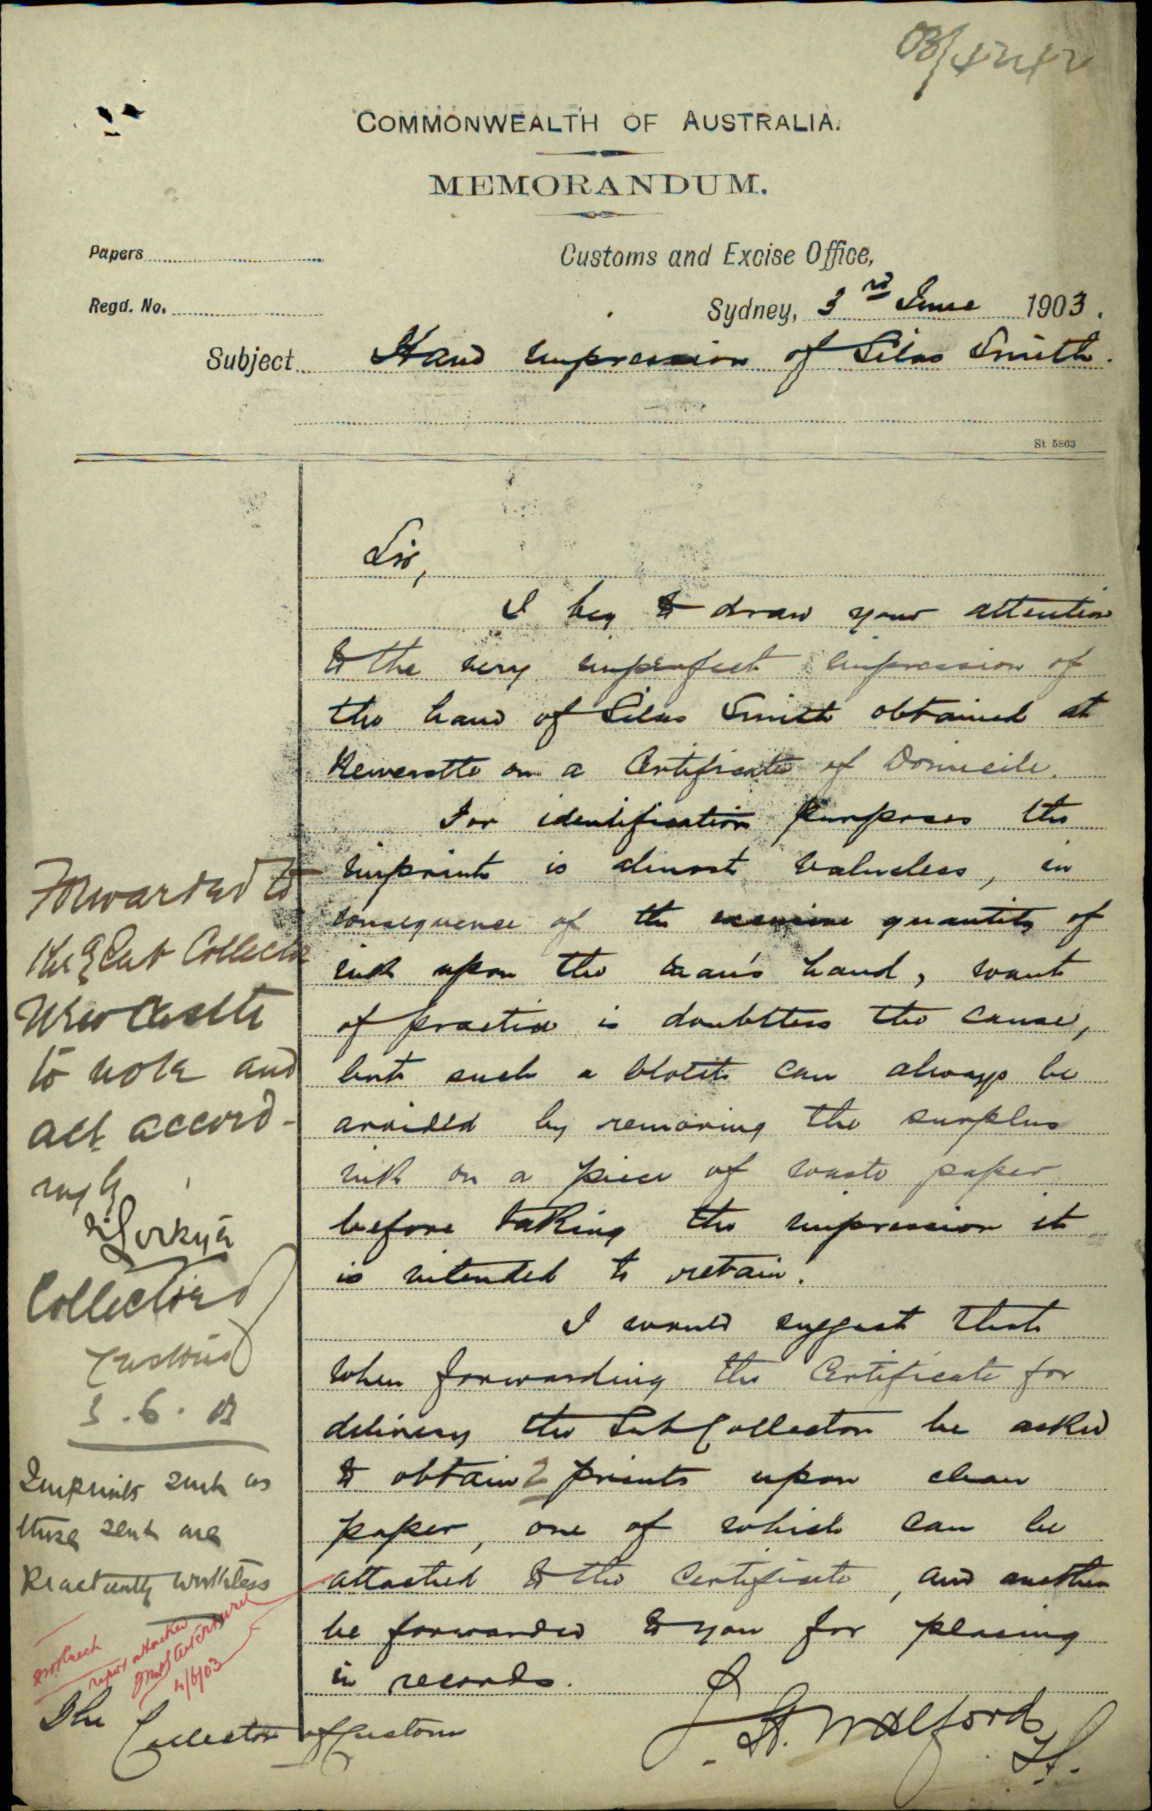 03/4242
COMMONWEALTH OF AUSTRALIA.
MEMORANDUM.
Papers
Customs and Excise Office,
Regd. No.
Sydney, 3rd June 1903.
Subject Hand impression of Silas Smith.
St 5863
Sir,
I beg to draw your attention
to the very imperfect impression of
the hand of Silas Smith obtained at
Newcastle on a Certificate of Domicile.
For identification purposes the
imprint is almost valueless, in
consequence of the excessive quantity of
ink upon the man's hand, want
of practice is doubtless the cause,
but such a blotch can always be
avoided by removing the surplus
ink on a piece of waste paper
before taking the impression it
is intended to retain.
I would suggest that
when forwarding the Certificate for
delivery the Sub Collector be asked
to obtain 2 prints upon clean
paper, one of which can be
attached to the Certificate, and another
be forwarded to you for placing
in records.
The
Collector of Customs
Forwarded to
the Sub Collector
Newcastle
to note and
act accord-
ingly
Collector of
Customs
3.6.03
Imprints such as
those sent are
Practically worthless
report attached
4/6/03